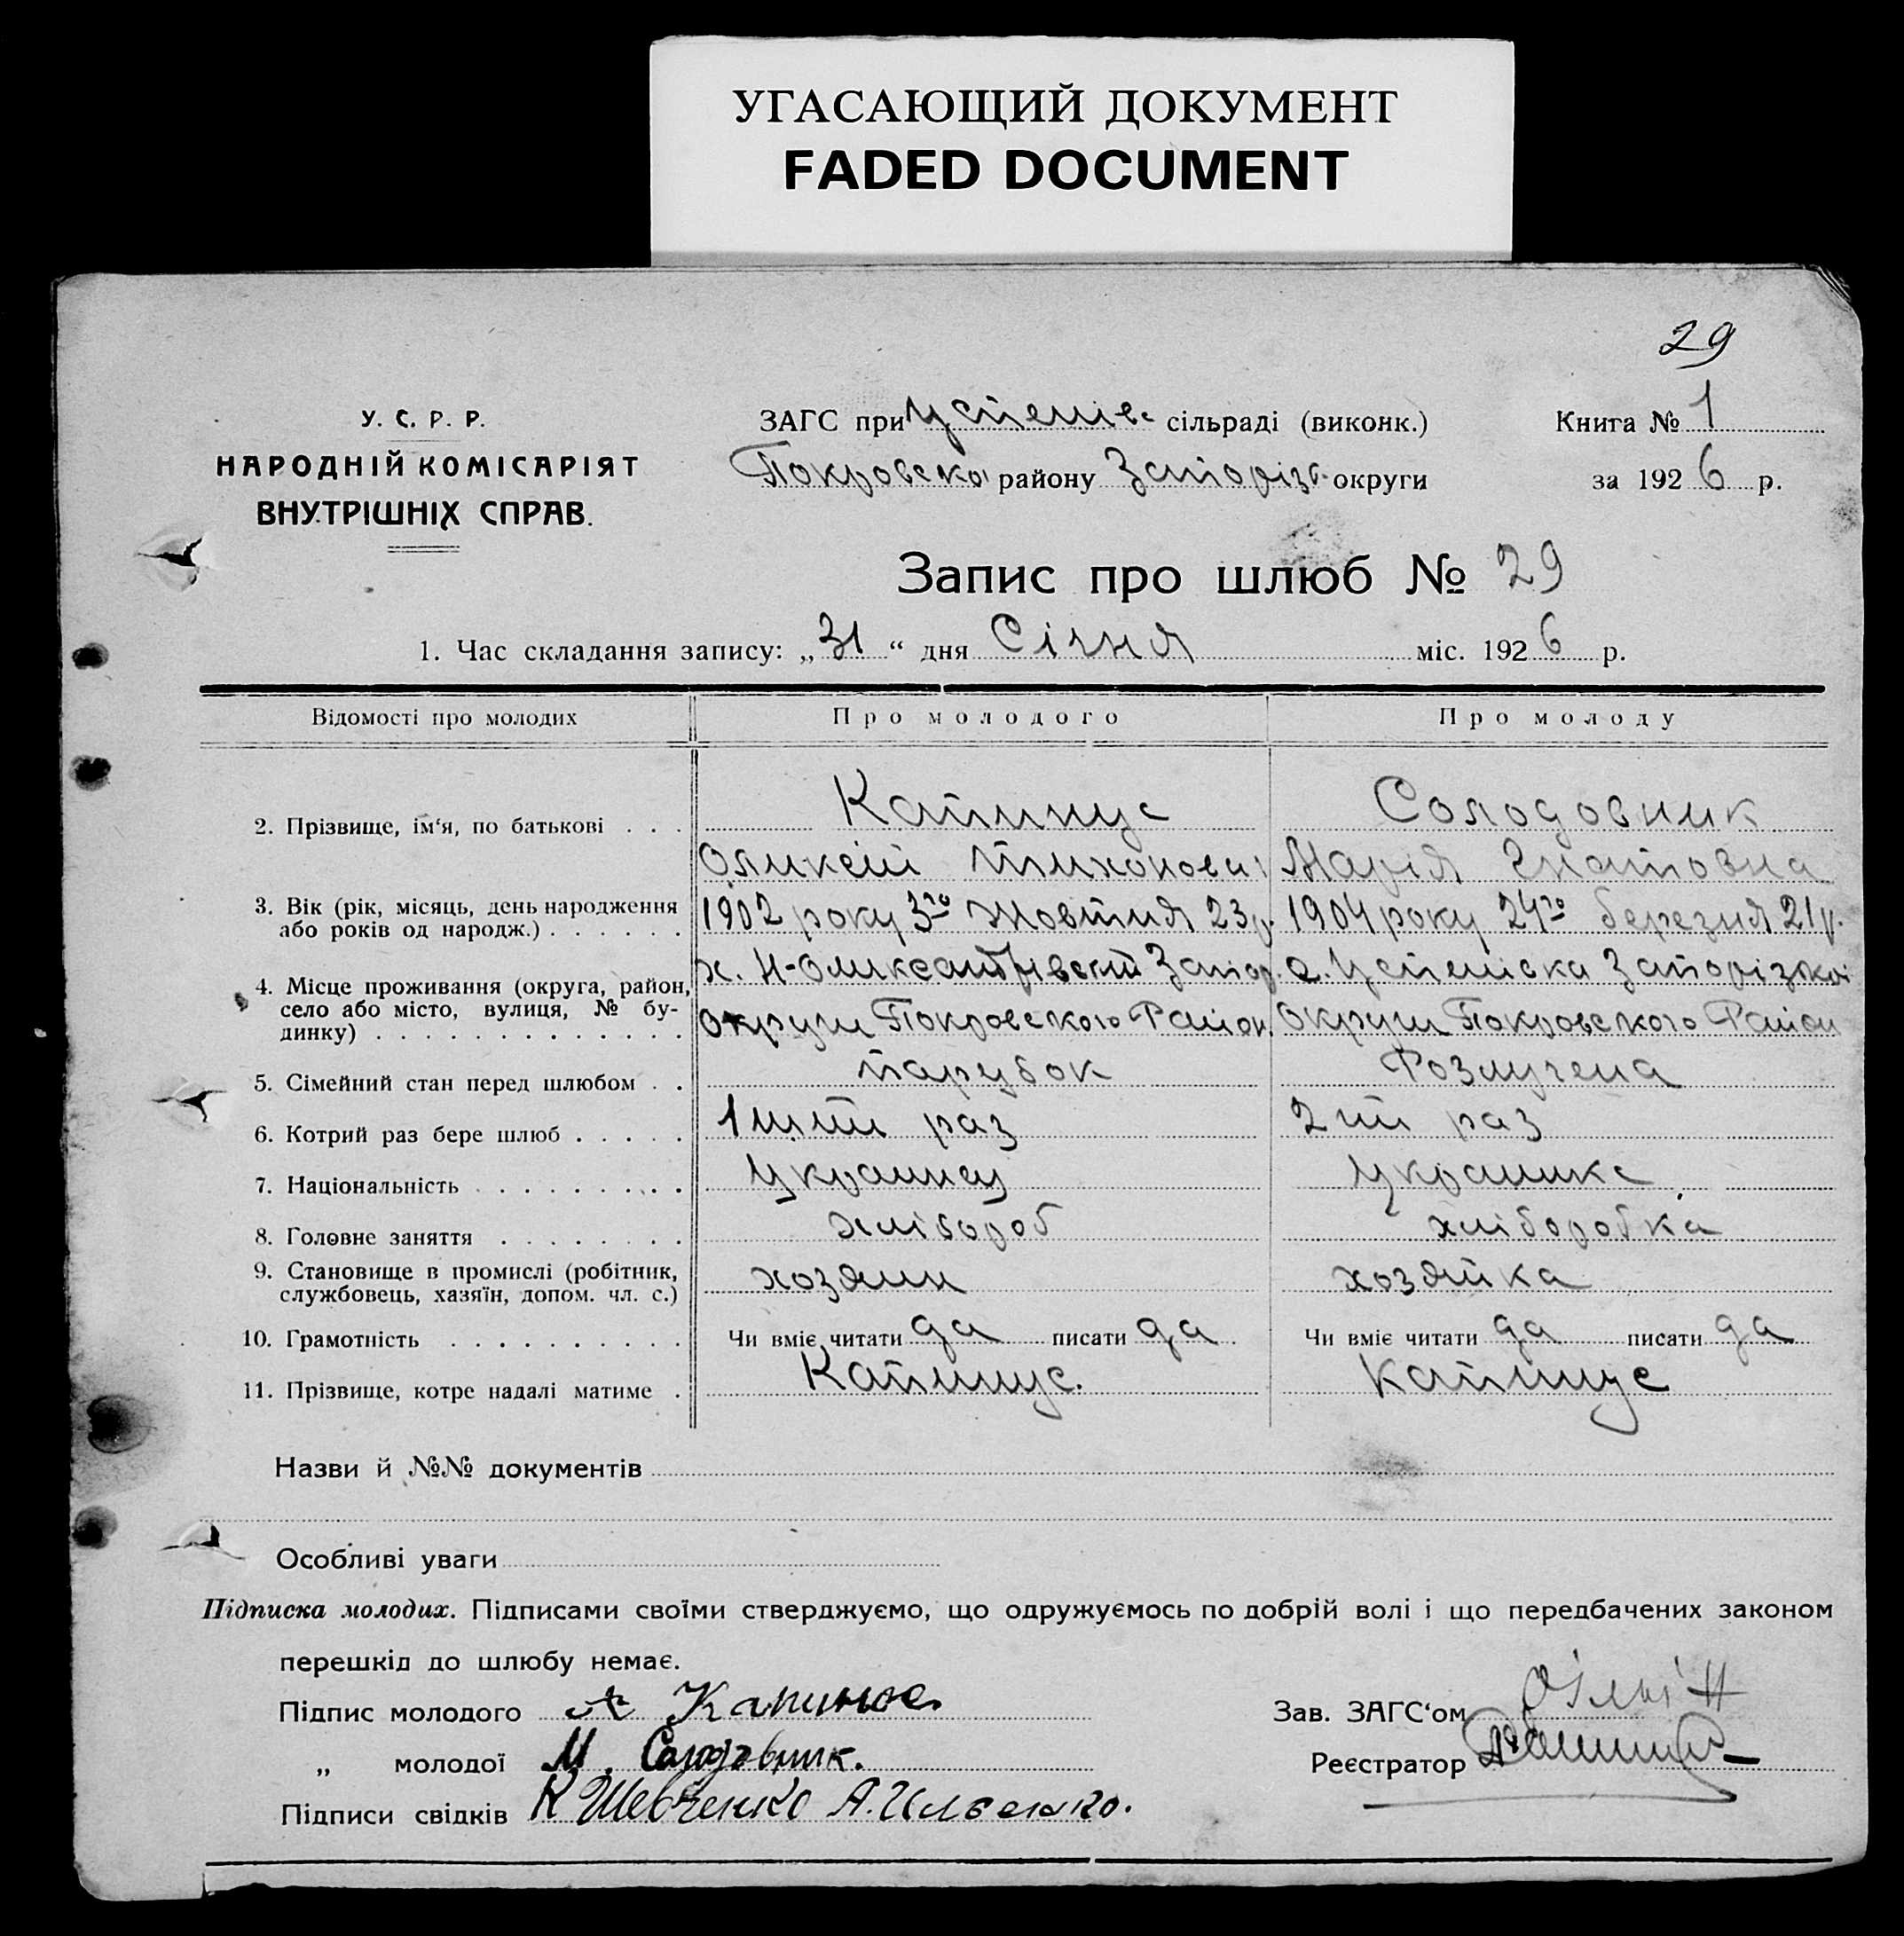 УГАСАЮЩИЙ ДОКУМЕНТ
FADED DOCUMENT
29
У. С. Р. Р.
НАРОДНІЙ КОМІСАРІЯТ
ВНУТРІШНІХ СПРАВ.
ЗАГС при Успенів. сільраді (виконк.)
Покровско району Запоріз. округи
Книга № 1
за 1926 р.
Запис про шлюб № 29
1. Час складання запису: „31“ дня Січня міс. 1926 р.
Відомості про молодих Про молодого Про молоду
2. Прізвище, ім'я, по батькові . . . Капинус Солодовник
Оликсій Тихонови Марія Гнатовна
3. Вік (рік, місяць, день народження 1902 року 3го Жовтня 23 р. 1904 року 24го березня 21 р.
або років од народж.) . . . . . .
4. Місце проживання (округа, район, х. Н-Оликсантрівский Запор. с. Успенівка Запорізкої
село або місто, вулиця, № бу- округи Покровського Район. Округи Покровского Район
динку) . . . . . . . . . . . . . .
5. Сімейний стан перед шлюбом . . парубок Розлучена
6. Котрий раз бере шлюб . . . . . 1ший раз 2ий раз
7. Національність . . . . . . . . . Украинец Украинка
8. Головне заняття . . . . . . . . хлібороб хліборобка
9. Становище в промислі (робітник, хозяин хозяйка
службовець, хазяїн, допом. чл. с.)
10. Грамотність . . . . . . . . . . Чи вміє читати да писати да Чи вміє читати да писати да
11. Прізвище, котре надалі матиме . Капинус. Капинус
Назви й №№ документів
Особливі уваги
Підписка молодих. Підписами своїми стверджуємо, що одружуємось по добрій волі і що передбачених законом
перешкід до шлюбу немає.
Підпис молодого А Капинос Зав. ЗАГС'ом
„ молодої М. Солодовник. Реєстратор
Підписи свідків К Шевченко А. Ильенко.